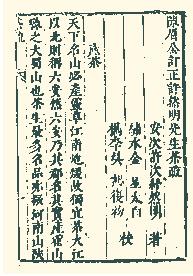 陳眉公訂正許然明先生茶疏
許次紓然明 著
繡水金 星太白
校
產茶
天下名山必產靈草江南地煖故獨宜茶大江
以北則稱六安然六安乃其郡名其實產霍山
縣之大蜀山也茶生最多名品亦振河南山陝